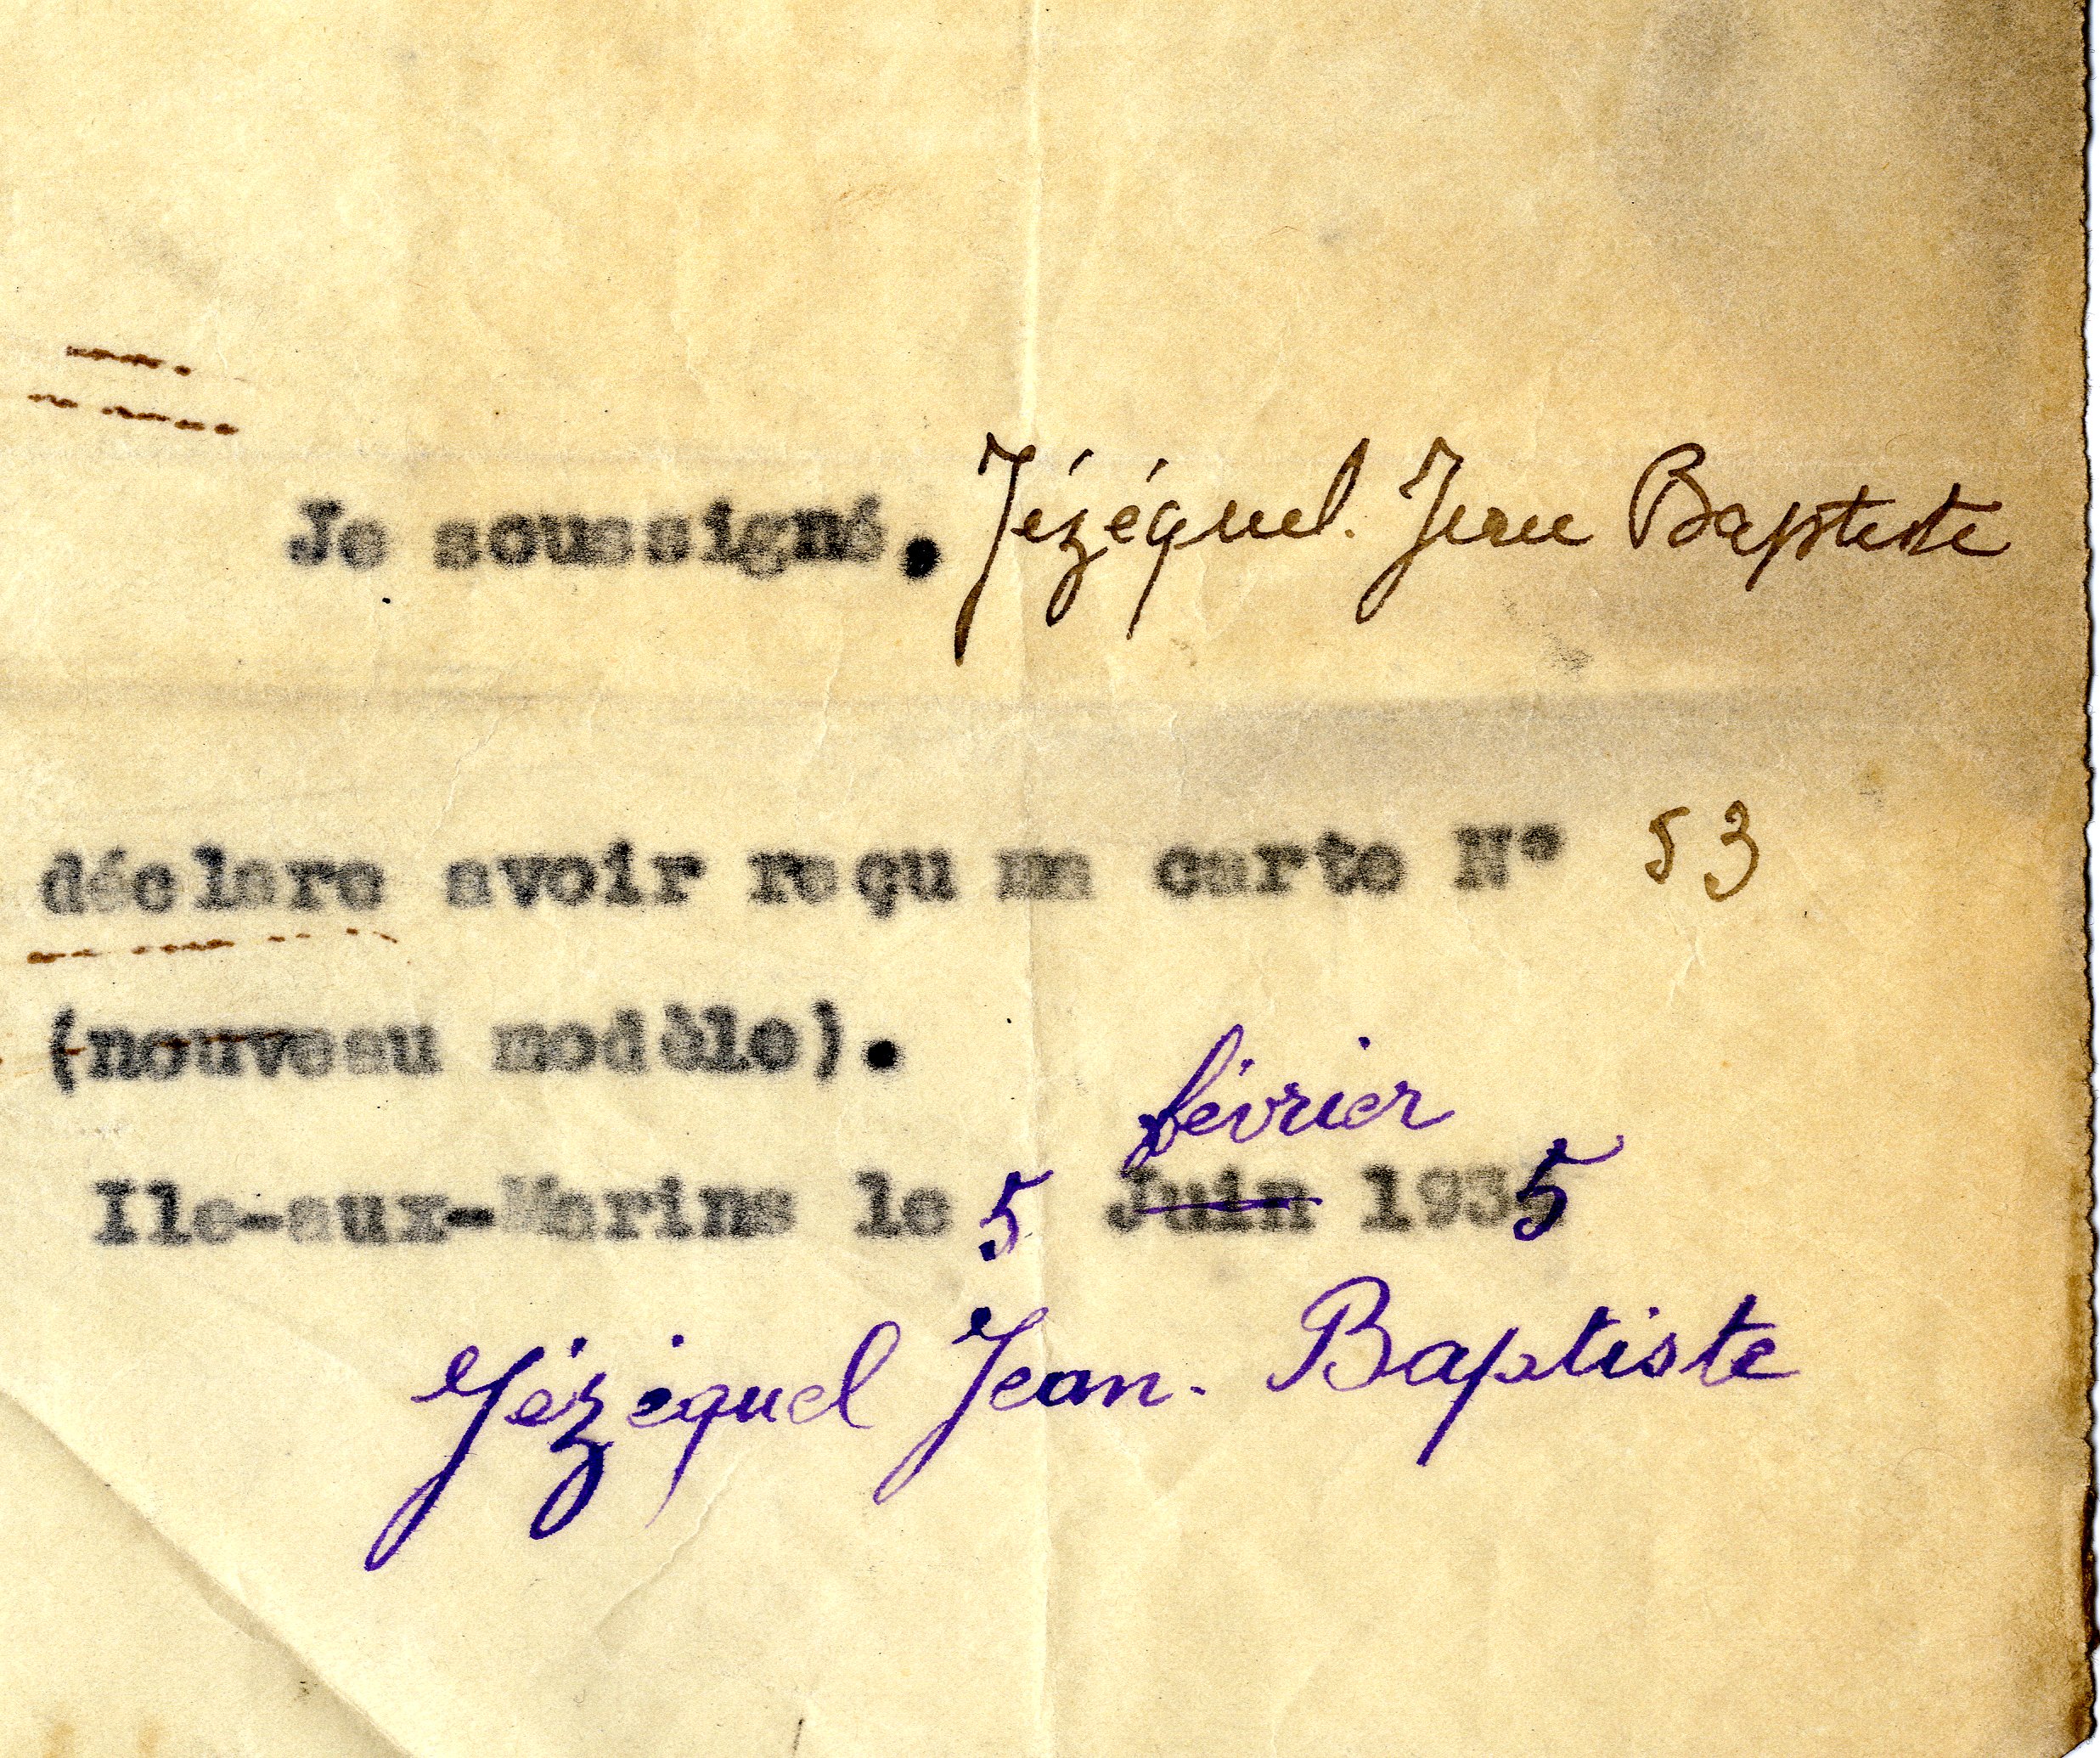 Je soussigné, Jézéquel. Jean Baptiste
déclare avoir reçu ma carte N° 53
(nouveau modèle).
février
Ile-aux-Marins le 5 Juin 1935
Jézéquel Jean. Baptiste